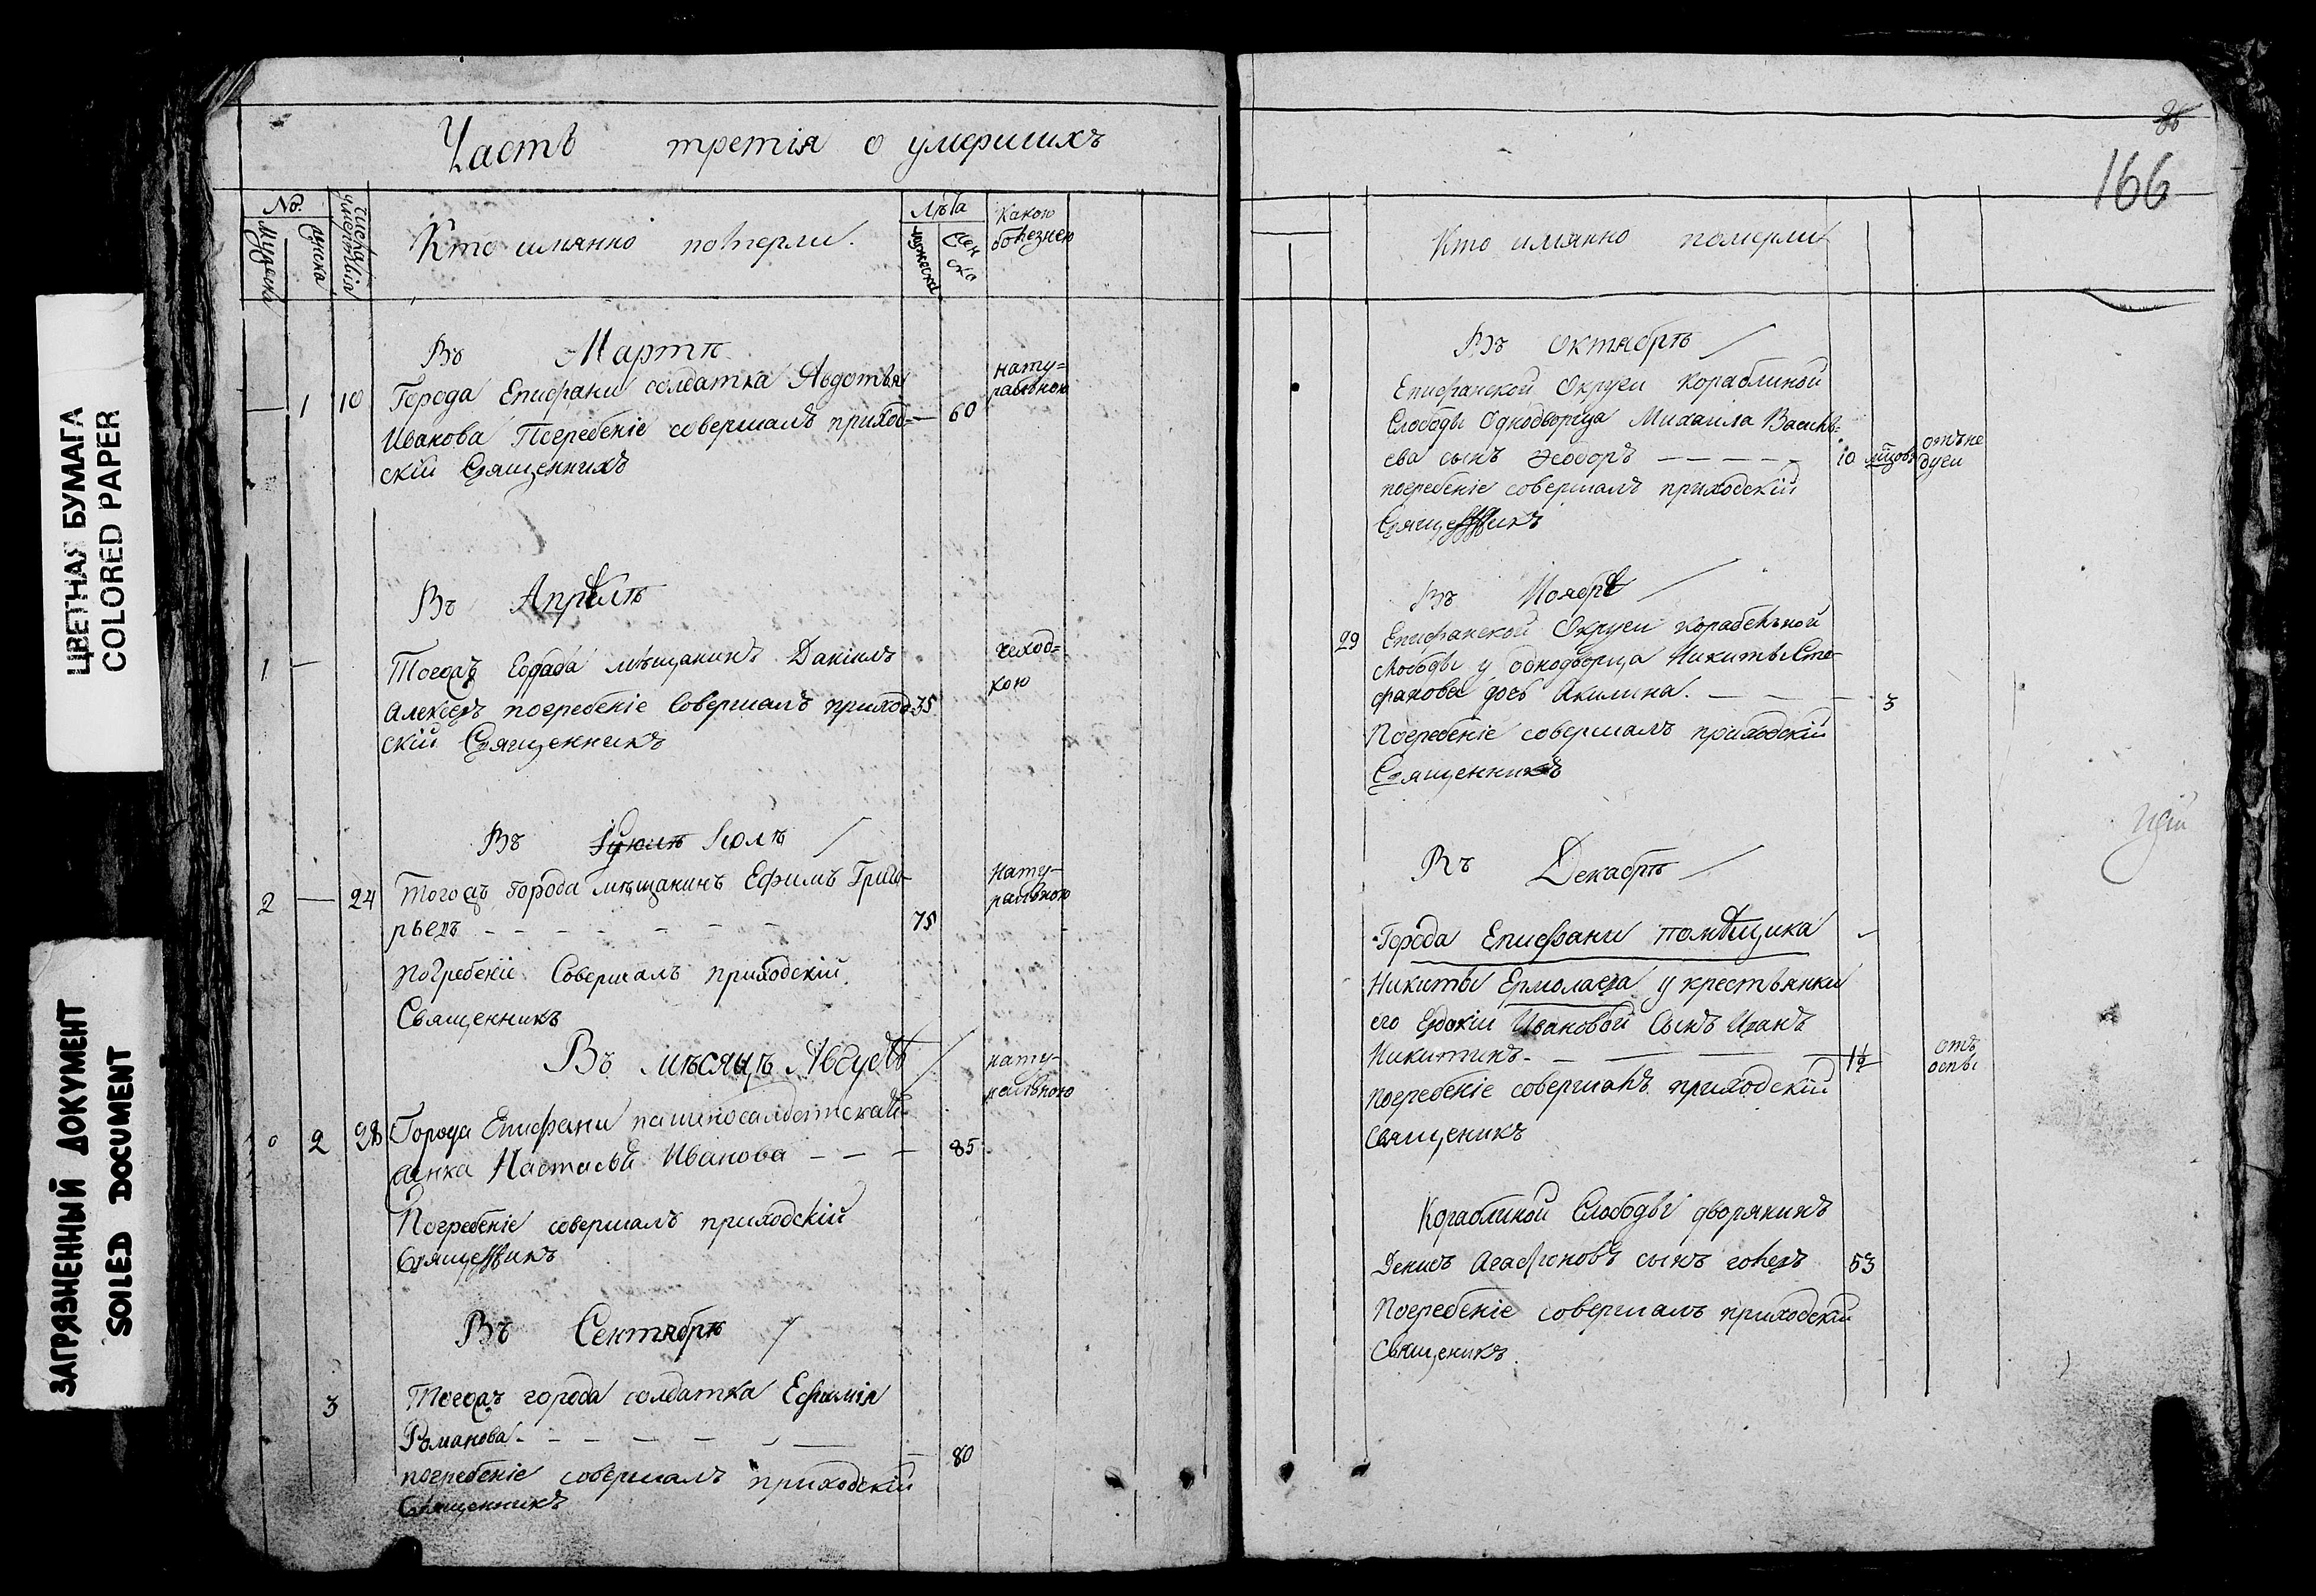 ЦВЕТНАЯ БУМАГА
COLORED PAPER
ЗАГРЯЗНЕННЫЙ ДОКУМЕНТ
SOILED DOCUMENT
Часть третія о умершихъ
No.
Мужеска
женска
числа умертвія
Кто имянно померли.
Лѣта
мужеска
женска
Какою
болезнею
Въ Мартѣ
— 1 10 Города Епифани солдатка Авдотья
Иванова Погребеніе совершалъ приход= — 60
скій Священникъ
нату=
ральною
Въ Апрѣлѣ
1 — Тогожъ города мѣщанинъ Даніилъ
Алексѣевъ погребеніе совершалъ приход 35
скій Священникъ
чеход=
кою
Въ Іюлѣ
2 — 24 Тогожъ города мѣщанинъ Ефимъ Григо-
рьевъ — — — — — — 75
Погребеніе Совершалъ приходскій
Священникъ
нату-
ральною
Въ мѣсяцъ Августѣ
0 2 28 Города Епифани
Настасья Иванова — — — 85
Погребеніе совершалъ приходскій
Священникъ
нату-
ральною
Въ Сентябрѣ
3 Тогожъ города солдатка Ефимія
Романова — — — — — — 80
погребеніе совершалъ приходскій
Священникъ
166
Кто имянно померли
Въ Октябрѣ
Епифанской Округи Кораблиной
Слободы Однодворца Михаила Василь-
ева сынъ Ѳеодоръ — — — — — 10 мцовъ
погребеніе совершалъ приходскій
Священникъ
отъ не
дуги
Въ Ноябрѣ
29 Епифанской Округи Корабельной
Слободы у однодворца Никиты Сте-
фанова дочь Акилина. — — — 3
Погребеніе совершалъ приходскій
Священникъ
Въ Декабрѣ
Города Епифани помѣщика
Никиты Ермолаева у крестьянки
его Евдокіи Ивановой Сынъ Иванъ
Никитинъ — — — — 1½
погребеніе совершалъ приходскій
священикъ
отъ
оспы
Кораблиной Слободы дворянинъ
Денисъ Агафоновъ сынъ 53
Погребеніе совершалъ приходскій
Священикъ.